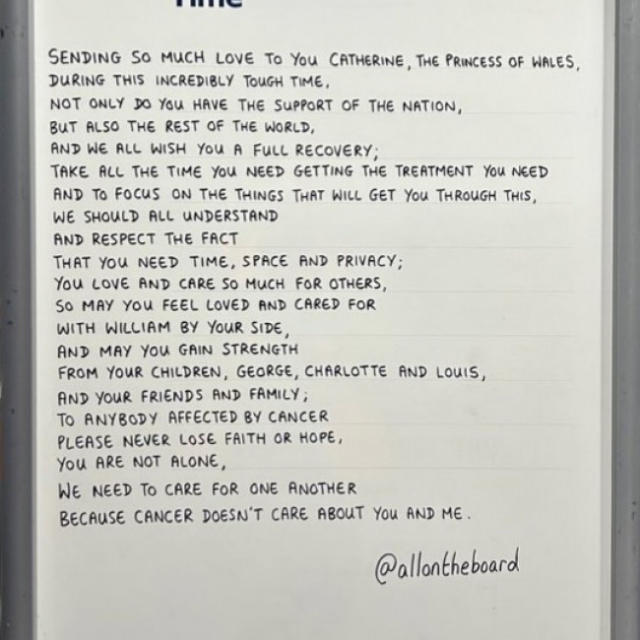 Time
SENDING SO MUCH LOVE TO YOU CATHERINE, THE PRINCESS OF WALES,
DURING THIS INCREDIBLY TOUGH TIME,
NOT ONLY DO YOU HAVE THE SUPPORT OF THE NATION,
BUT ALSO THE REST OF THE WORLD,
AND WE ALL WISH YOU A FULL RECOVERY;
TAKE ALL THE TIME YOU NEED GETTING THE TREATMENT YOU NEED
AND TO FOCUS ON THE THINGS THAT WILL GET YOU THROUGH THIS,
WE SHOULD ALL UNDERSTAND
AND RESPECT THE FACT
THAT YOU NEED TIME, SPACE AND PRIVACY;
YOU LOVE AND CARE SO MUCH FOR OTHERS,
SO MAY YOU FEEL LOVED AND CARED FOR
WITH WILLIAM BY YOUR SIDE,
AND MAY YOU GAIN STRENGTH
FROM YOUR CHILDREN, GEORGE, CHARLOTTE AND LOUIS,
AND YOUR FRIENDS AND FAMILY;
TO ANYBODY AFFECTED BY CANCER
PLEASE NEVER LOSE FAITH OR HOPE,
YOU ARE NOT ALONE,
WE NEED TO CARE FOR ONE ANOTHER
BECAUSE CANCER DOESN'T CARE ABOUT YOU AND ME.
@allontheboard